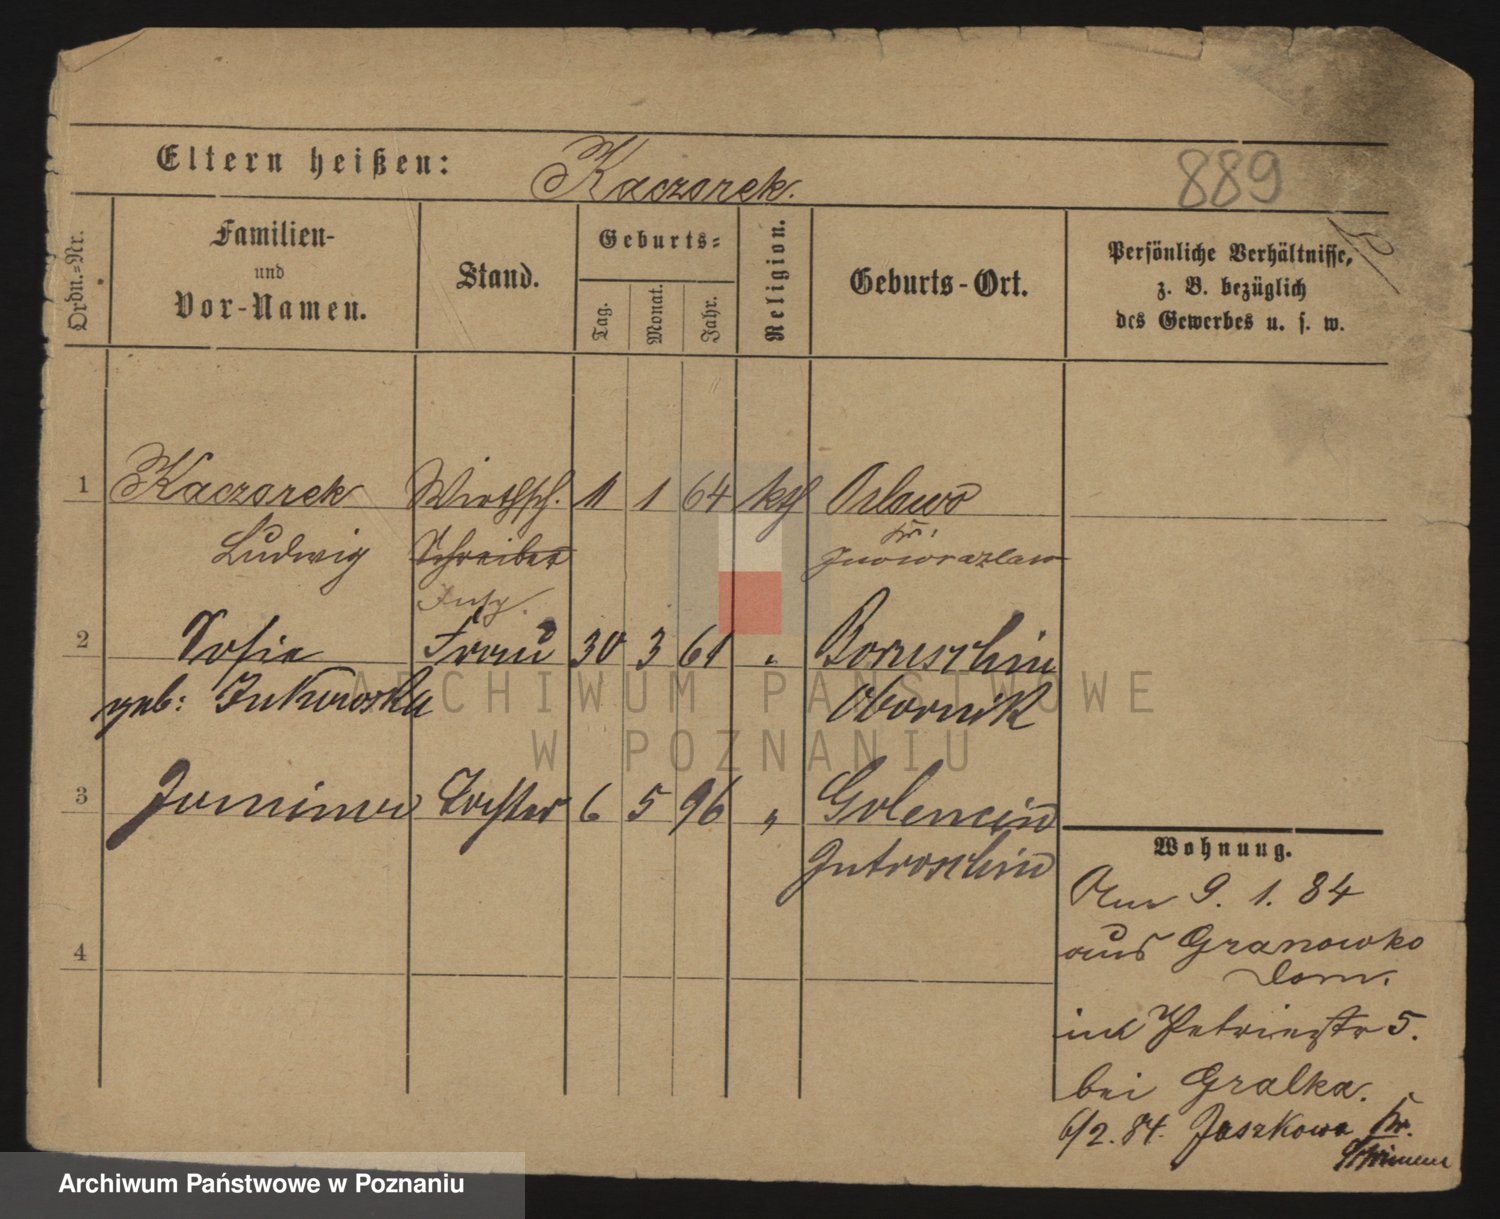 Eltern heißen: Kaczorek.
889
Ordn.=Nr.
Familien-
und
Vor-Namen.
Stand.
Geburts=
Tag.
Monat.
Jahr.
Religion.
Geburts-Ort.
Persönliche Verhältnisse,
z. B. bezüglich
des Gewerbes u. s. w.
1 Kaczorek Wirthsch. 1 1 64 kth
Ludwig Schreiber
Kr.
Inowrazlaw
Insp.
2 Sofie Frau 30 3 61 " Boruschin
geb: Obornik
3 Tochter 6 5 96 "
Jutroschin
4
Wohnung.
Am 9. 1. 84
aus Granowko
Dom.
in Petristr 5.
bei Gralka.
6/2. 84. Jaszkowo Kr.
Schrimm
ARCHIWUM PAŃSTWOWE
W POZNANIU
Archiwum Państwowe w Poznaniu